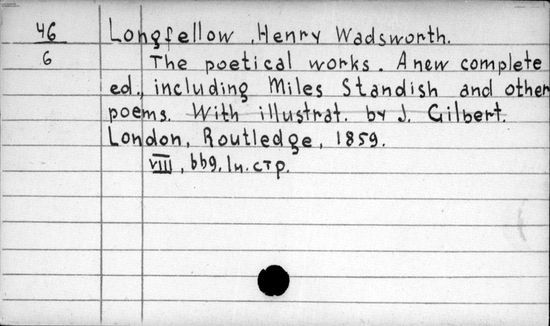 46 Longfellow, Henry Wadsworth.
6 The poetical works. A new complete
ed., including Miles Standish and other
poems. With illustrat. by J. Gilbert.
London, Routledge, 1859.
VIII, 669, 1 н. стр.